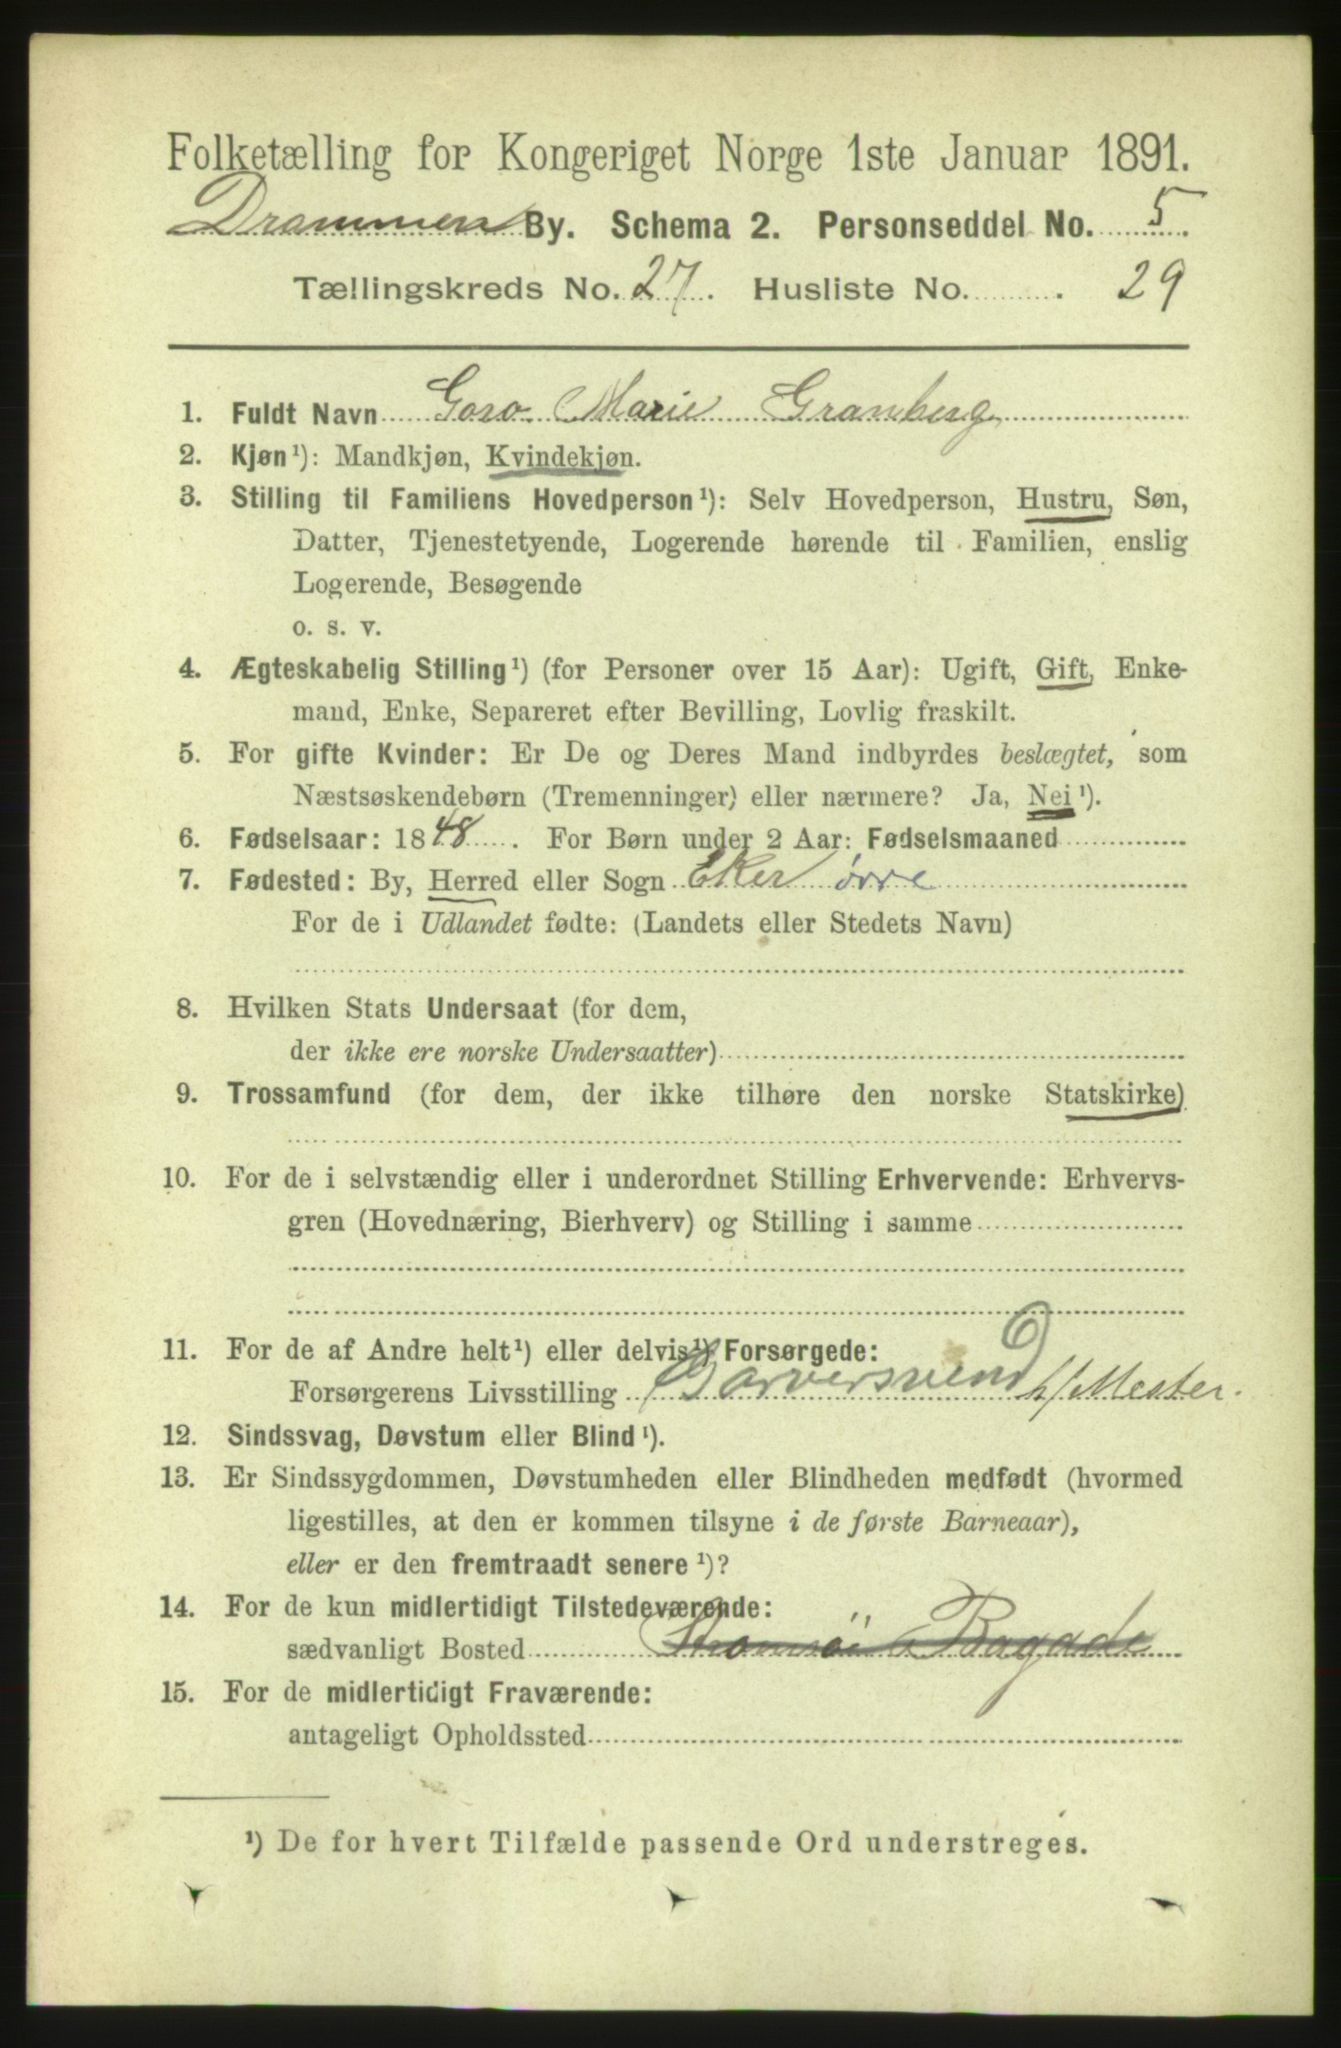 Folketælling for Kongeriget Norge 1ste Januar 1891.
Drammens By. Schema 2. Personseddel No. 5.
Tællingskreds No. 27. Husliste No. 29
1. Fuldt Navn Goro Marie Granberg
2. Kjøn¹): Mandkjøn, Kvindekjøn.
3. Stilling til Familiens Hovedperson¹): Selv Hovedperson, Hustru, Søn,
Datter, Tjenestetyende, Logerende hørende til Familien, enslig
Logerende, Besøgende
o. s. v.
4. Ægteskabelig Stilling¹) (for Personer over 15 Aar): Ugift, Gift, Enke-
mand, Enke, Separeret efter Bevilling, Lovlig fraskilt.
5. For gifte Kvinder: Er De og Deres Mand indbyrdes beslægtet, som
Næstsøskendebørn (Tremenninger) eller nærmere? Ja, Nei¹).
6. Fødselsaar: 1848. For Børn under 2 Aar: Fødselsmaaned
7. Fødested: By, Herred eller Sogn Eker övre
For de i Udlandet fødte: (Landets eller Stedets Navn)
8. Hvilken Stats Undersaat (for dem,
der ikke ere norske Undersaatter)
9. Trossamfund (for dem, der ikke tilhøre den norske Statskirke)
10. For de i selvstændig eller i underordnet Stilling Erhvervende: Erhvervs-
gren (Hovednæring, Bierhverv) og Stilling i samme
11. For de af Andre helt¹) eller delvis¹) Forsørgede:
Forsørgerens Livsstilling Garversvend h/Mester.
12. Sindssvag, Døvstum eller Blind¹).
13. Er Sindssygdommen, Døvstumheden eller Blindheden medfødt (hvormed
ligestilles, at den er kommen tilsyne i de første Barneaar),
eller er den fremtraadt senere¹)?
14. For de kun midlertidigt Tilstedeværende:
sædvanligt Bosted Strømsöi Bagade
15. For de midlertidigt Fraværende:
antageligt Opholdssted
¹) De for hvert Tilfælde passende Ord understreges.